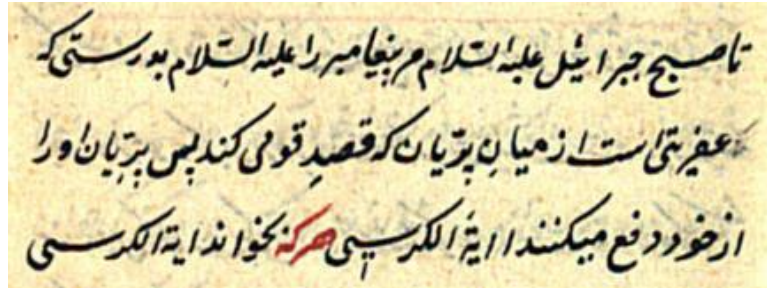 تا صبح جبرائیل علیه السّلام مر پیغامبر را علیه السّلام بدرستی که
عفریتی است از میانِ پریان که قصدِ تو می کند پس پریان او را
از خود دفع میکنند اایة الکرسی هرکه بخواند ایة الکرسی